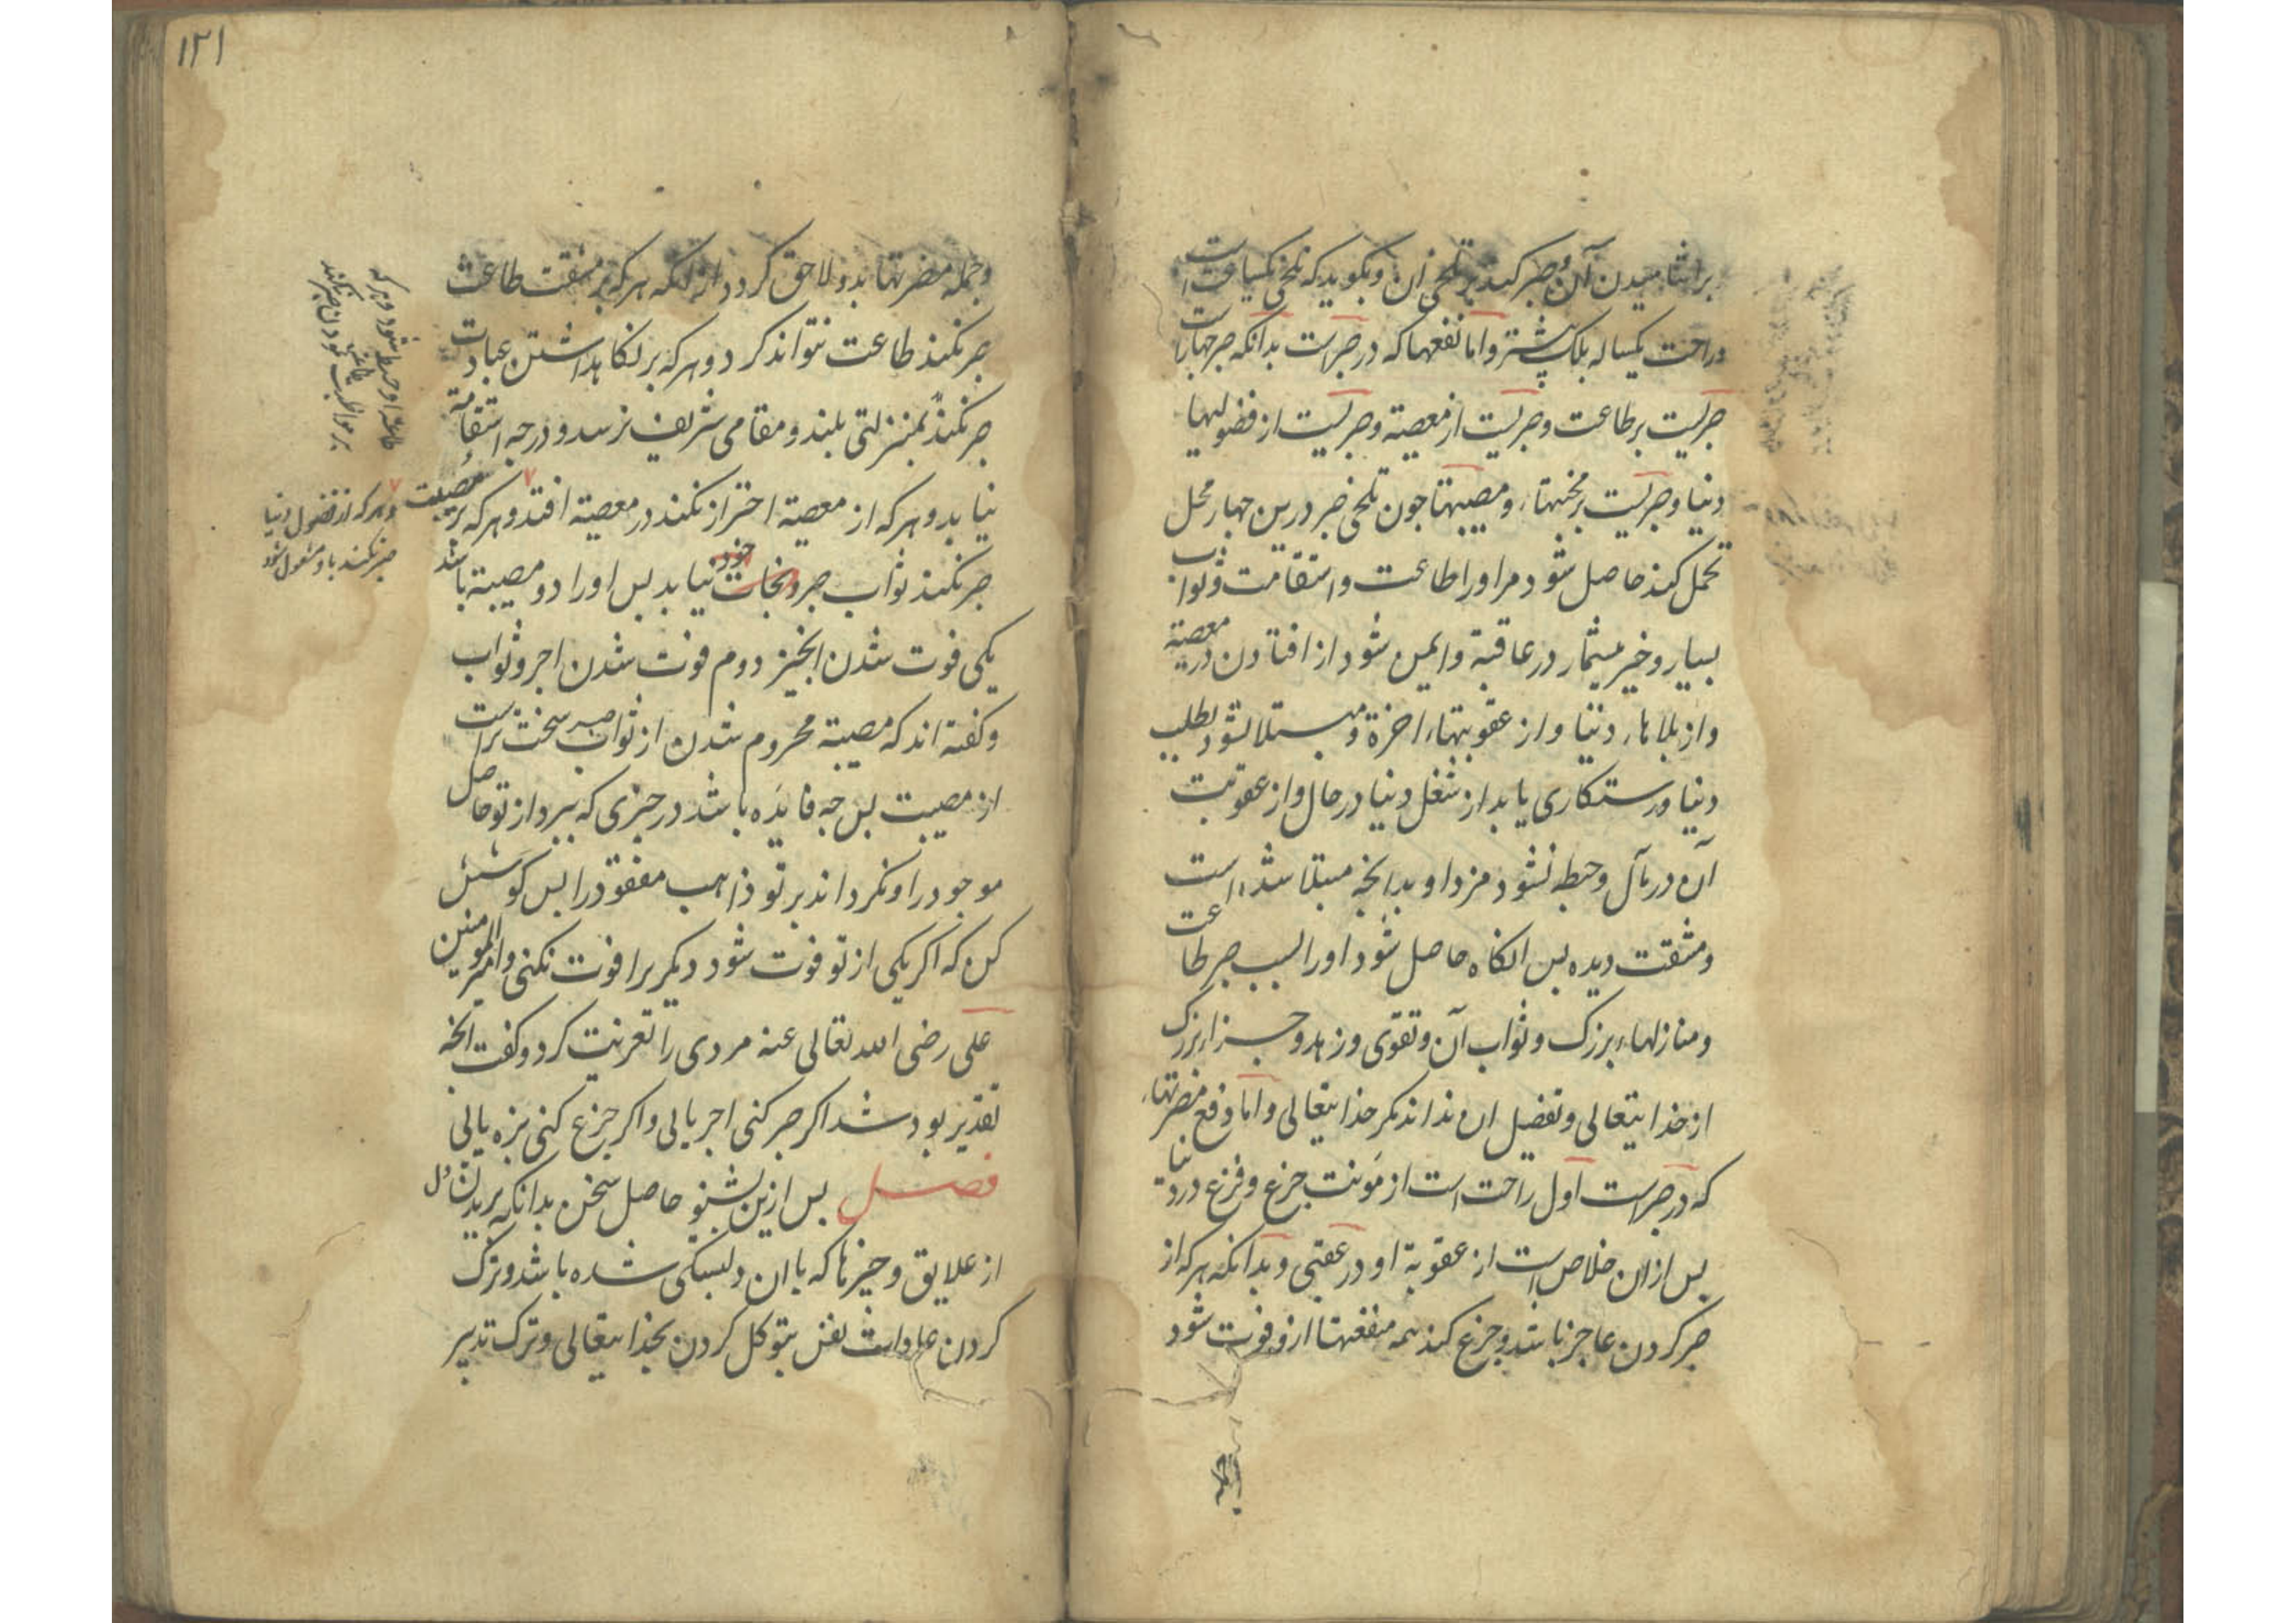 بر اشامیدن آن و صبر کند بر تلخی ان و بکوید که تلخی یکساعت است
و راحت یکساله بلک بیشتر و اما نفعها که در صبرست بدانکه صبر چهارست
صبریست بر طاعت و صبریست از معصیة و صبریست از فضولیها
دنیا و صبریست بر محنتها و مصیبتها جون تلخی صبر درین جهار محل
تحمل کند حاصل شود مر او را طاعت و استقامت و ثواب
بسیار و خیر بیشمار در عاقبة و ایمن شود از افتادن در معصیة
و از بلاهاء دنیا و از عقوبتهاء اخرة و مبتلا نشود بطلب
دنیا و رستکاری یابد از شغل دنیا در حال و از عقوبت
آن در مآل و حبطه نشود مزد او بدانچه مبتلا شده است
و مشقت دیده بس انکاه حاصل شود او را بسبب صبر طاعت
و منازلهاء بزرک و ثواب آن و تقوی و زهد و جزاء بزرک
از خدایتعالی و تفضیل ان نداند مکر خدایتعالی و اما دفع مضرتهاء
که در صبرست اول راحت است از مؤنت جزع و فزع در دنیا
بس از ان خلاص است از عقوبة او در عقبی و بدانکه هر که از
صبر کردن عاجز باشد و جزع کند همه منفعتها ازو فوت شود
۱۲۱
و جمله مضرتها بدو لاحق کردد از انکه هر که بر مشقت طاعت
صبر نکند طاعت نتواند کرد و هر که بر نکاهداشتن عبادت
صبر نکند بمنزلتی بلند و مقامی شریف نرسد و درجه استقامة
نیابد و هر که از معصیة احتراز نکند در معصیة افتد و هر که بر مصیبت
صبر نکند ثواب صبر و نجات خود نیابد بس او را دو مصیبة باشد
یکی فوت شدن انچیز دوم فوت شدن اجر و ثواب
و کفته اند که مصیبة محروم شدن از ثواب صبر سخت تر است
از مصیبت بس چه فایده باشد در چیزی که ببرد از تو حاصل
موجود را و نکرداند بر تو ذاهب مفقود را بس کوشش
کن که اکر یکی از تو فوت شود دیکریرا فوت نکنی و امیر المومنین
علی رضی الله تعالی عنه مردی را تعزیت کرد و کفت انچه
تقدیر بود شد اکر صبر کنی اجر یابی و اکر جزع کنی بزه یابی
فصل بس ازین بشنو حاصل سخن بدانکه بریدن دل
از علایق و چیزها که با ان دلبستکی شده باشد و ترک
کردن عادات نفس بتوکل کردن بخدایتعالی و ترک تدبیر
طاعة او حبطه شود و هر که
بر مواظبت نمودن صبر نکند
و هر که از فضول دنیا
صبر نکند باو مشغول شود